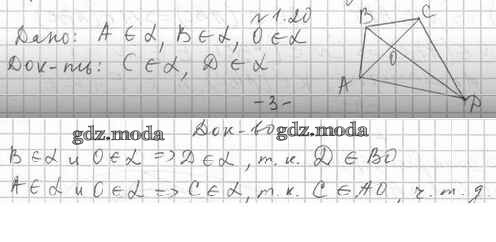 №1.20
Дано: A ∈ α, B ∈ α, O ∈ α
Док-ть: C ∈ α, D ∈ α
B C
O
A
D
-3-
gdz.moda Док-во gdz.moda
B ∈ α и O ∈ α => D ∈ α, т.к. D ∈ BO
A ∈ α и O ∈ α => C ∈ α, т.к. C ∈ AO, ч.т.д.